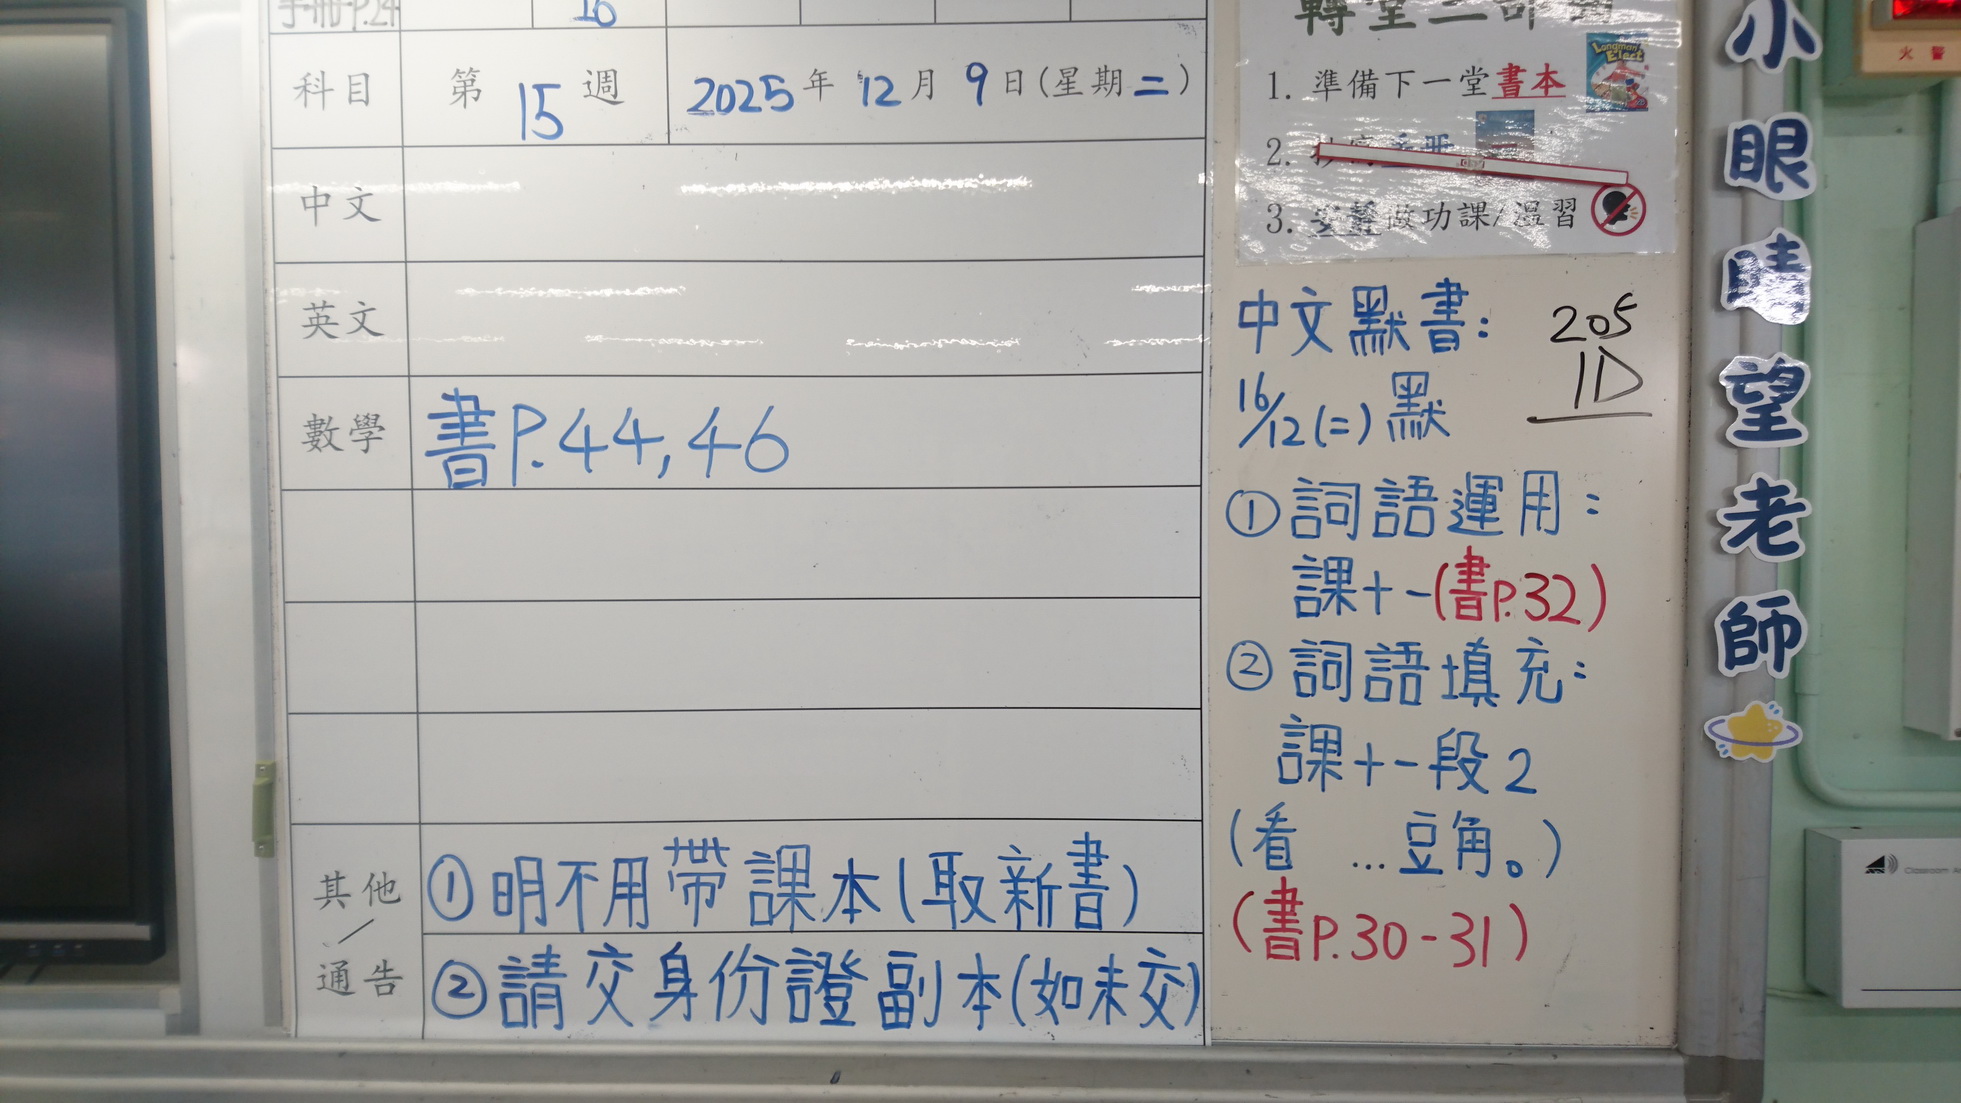 手冊P.24
16
科目 第15週 2025年12月9日(星期二)
中文
英文
數學 書P.44,46
其他/通告
①明不用帶課本(取新書)
②請交身份證副本(如未交)
轉堂三部曲
1. 準備下一堂書本
Longman Elect
2. 手冊
3. 安靜做功課/溫習
中文默書:
16/12(二)默
①詞語運用:
課十一(書P.32)
②詞語填充:
課十一段2
(看 ...豆角。)
(書P.30-31)
205
1D
小眼睛望老師
火警
Classroom